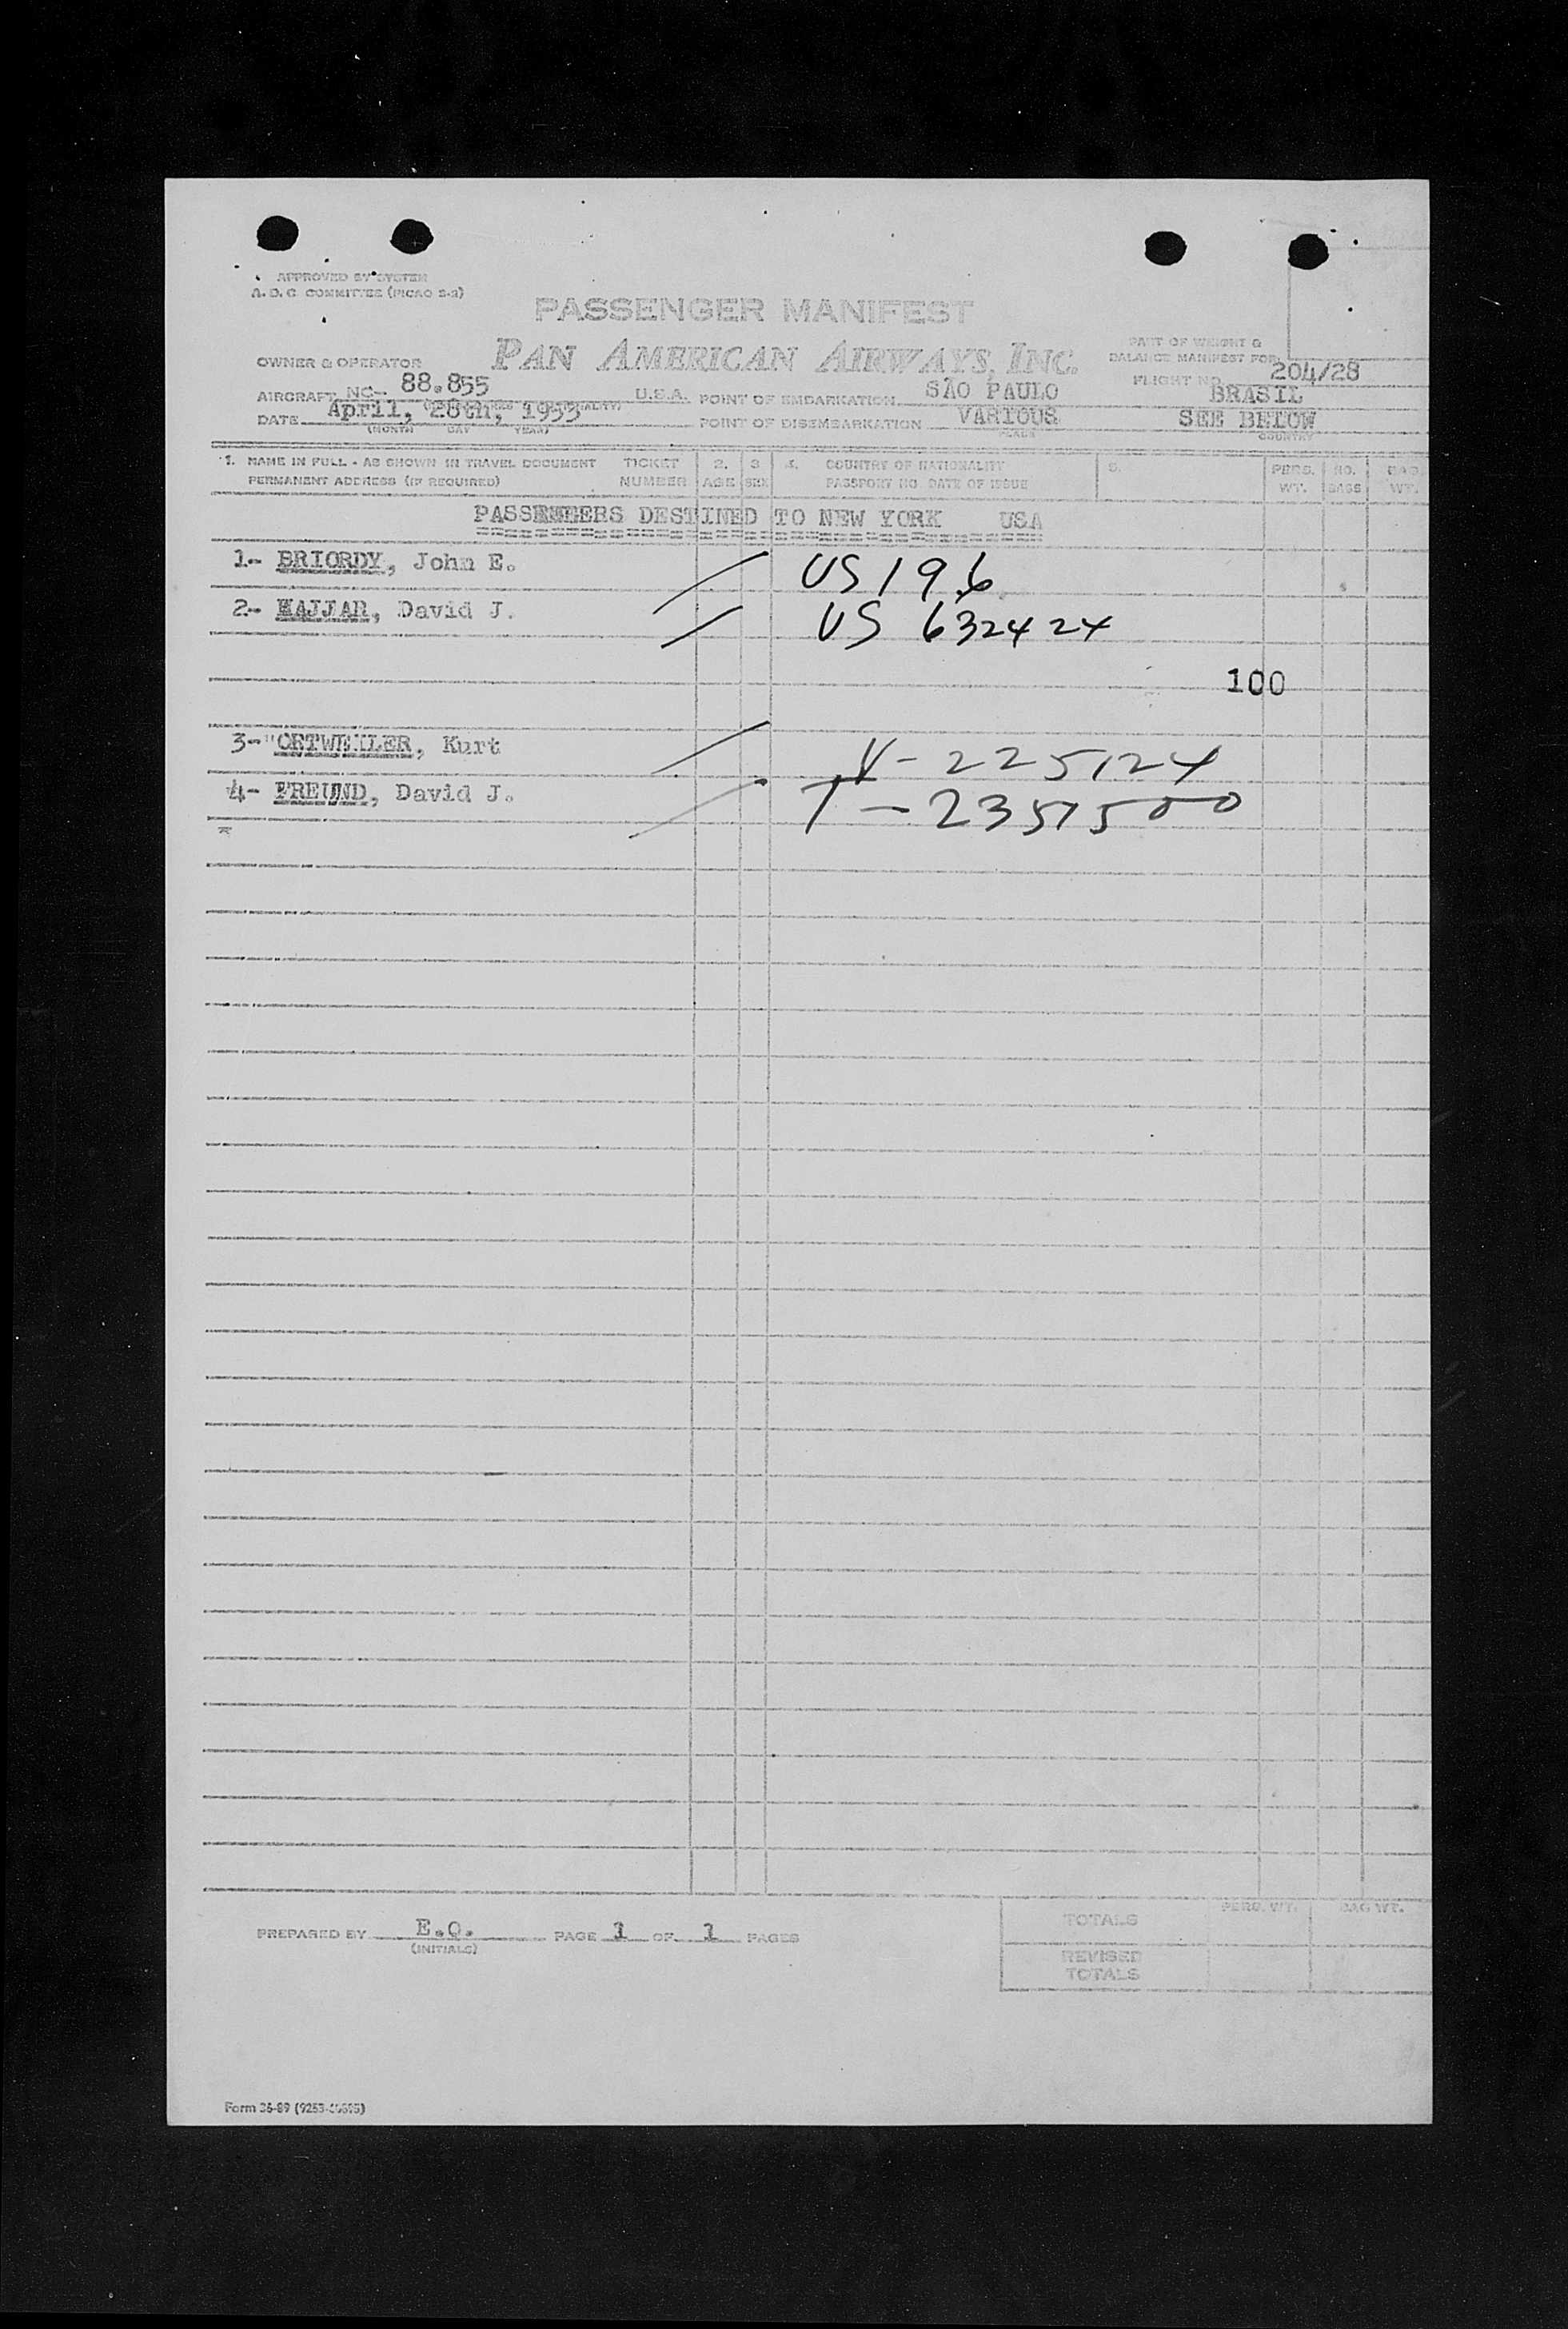 APPROVED BY SYSTEM
A.D.C COMMITTEE (PICAO S-2)
PASSENGER MANIFEST
PAN AMERICAN AIRWAYS, INC.
PART OF WEIGHT &
BALANCE MANIFEST FOR
OWNER & OPERATOR
FLIGHT NO. 204/28
AIRCRAFT NC- 88.855 U.S.A. POINT OF EMBARKATION SÃO PAULO BRASIL
DATE April, 28th, 1953 POINT OF DISEMBARKATION VARIOUS SEE BELOW
(MONTH DAY YEAR) PLACE COUNTRY
1. NAME IN FULL - AS SHOWN IN TRAVEL DOCUMENT TICKET 2. 3 4. COUNTRY OF NATIONALITY 5. PERS. NO. BAG.
PERMANENT ADDRESS (IF REQUIRED) NUMBER AGE SEX PASSPORT NO. DATE OF ISSUE WT. BAGS WT.
PASSENGERS DESTINED TO NEW YORK USA
1- BRIORDY, John E. US 196
2- HAJJAR, David J. US 632424
100
3- "ORTWEILER, Kurt V-225124
4- FREUND, David J. T-2351500
PREPARED BY E.O. PAGE 1 OF 1 PAGES
(INITIALS)
TOTALS PERS. WT. BAG WT.
REVISED
TOTALS
Form 36-89